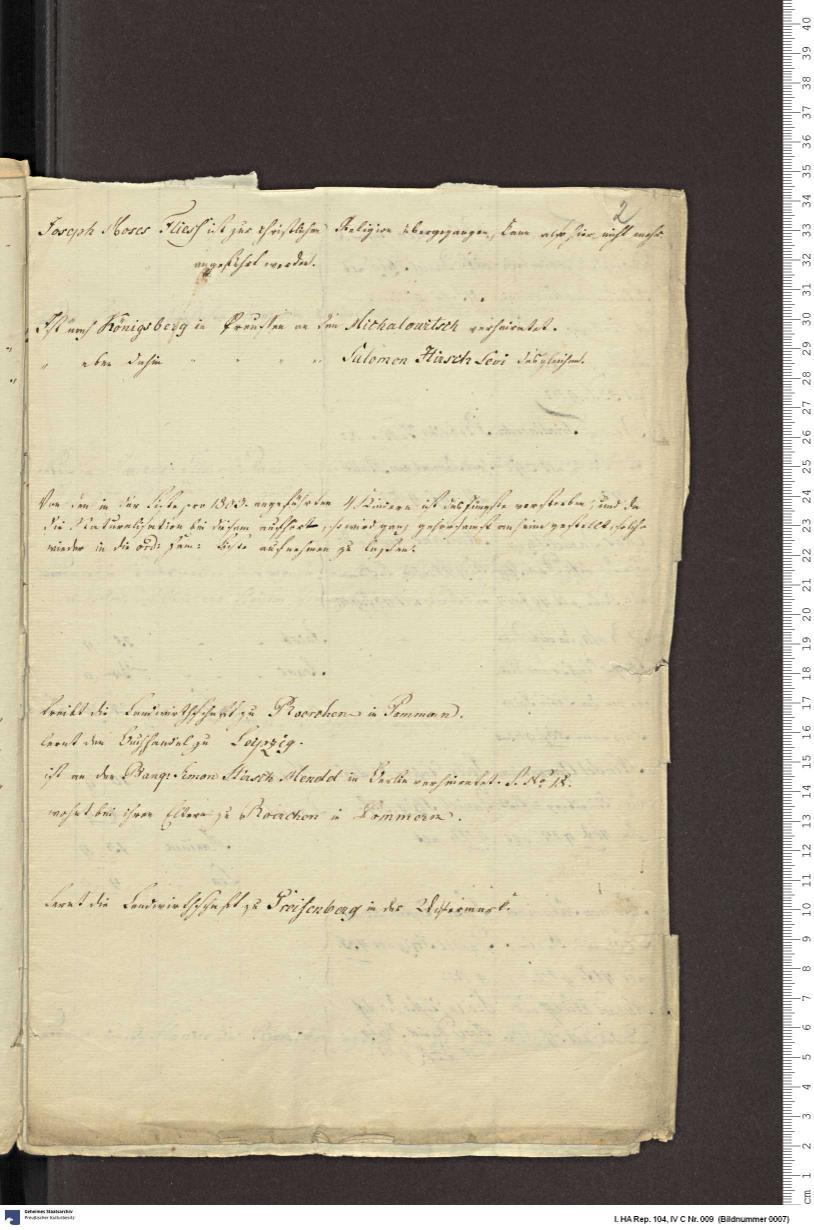 2
Joseph Moses Fliess ist zur christlichen Religion übergegangen, kann also hier nicht mehr
angeführt werden.
Ist nach Königsberg in Preussen an den Michalowitsch verheiratet.
" eben dahin " " " " Salomon Hirsch Levi desgleichen.
Von den in der Liste pro 1803. angeführten 4 Kindern ist das jüngste verstorben, und da
die Naturalisation bei diesem aufhört, so wird ganz gehorsamst anheim gestellt, solche
wieder in die ord: Fam: Liste aufnehmen zu lassen.
treibt die Landwirthschafft zu in Pommern.
lernt den Buchhandel zu Leipzig.
ist an den Banq: Simon Hirsch Mendel in Berlin verheiratet. S. No: 18.
wohnt bei ihren Eltern zu in Pommern.
lernt die Landwirthschafft zu in der Uckermark.
Geheimes Staatsarchiv
Preußischer Kulturbesitz
I. HA Rep. 104, IV C Nr. 009 (Bildnummer 0007)
cm 1 2 3 4 5 6 7 8 9 10 11 12 13 14 15 16 17 18 19 20 21 22 23 24 25 26 27 28 29 30 31 32 33 34 35 36 37 38 39 40